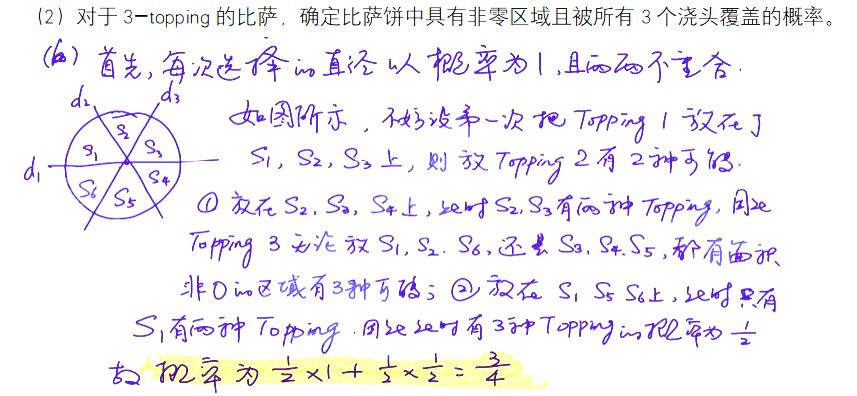 (2) 对于 3-topping 的比萨，确定比萨饼中具有非零区域且被所有 3 个浇头覆盖的概率。
(b) 首先，每次选择的直径以概率为1，且两两不重合.
d₂ d₃
d₁ S₁ S₂ S₃ S₄ S₅ S₆
如图所示，不妨设第一次把 Topping 1 放在了
S₁, S₂, S₃上，则放Topping 2有2种可能.
① 放在S₂, S₃, S₄上，此时S₂, S₃有两种Topping, 因此
Topping 3 无论放S₁, S₂. S₆, 还是S₃, S₄. S₅, 都有面积
非0的区域有3种可能；② 放在 S₁ S₅ S₆上，此时只有
S₁有两种Topping. 因此此时有3种Topping的概率为 1/2
故 概率为 1/2 ×1 + 1/2 × 1/2 = 3/4